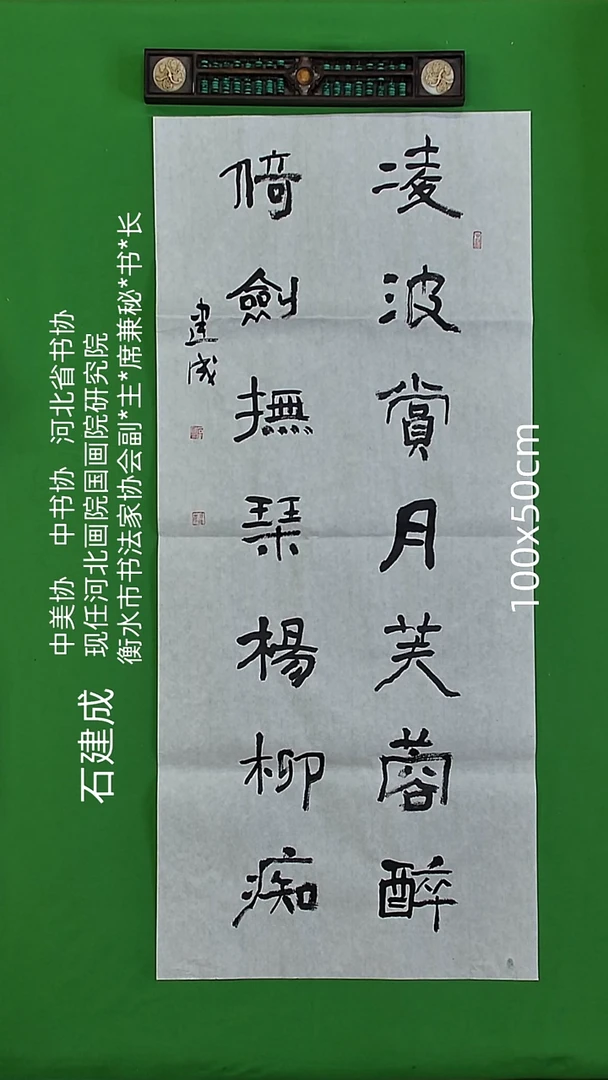 凌波賞月芙蓉醉
倚劍撫琹楊柳痴
建成
石建成
中美协 中书协 河北省书协
现任河北画院国画院研究院
衡水市书法家协会副*主*席兼秘*书*长
100x50cm